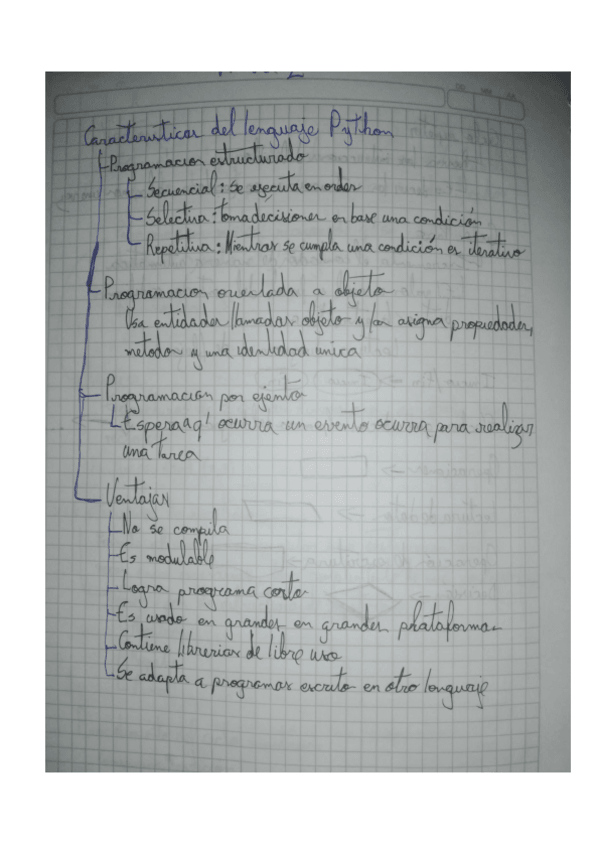 Caracteristicas del lenguaje Python
Programacion estructurado
Secuencial: Se ejecuta en orden
Selectiva: toma decisiones en base una condición
Repetitiva: Mientras se cumpla una condición es iterativo
Programacion orientada a objeto
Usa entidades llamadas objeto y las asigna propiedades,
metodos y una identidad unica
Programación por ejento
Espera a q' ocurra un evento ocurra para realizar
una tarea
Ventajas
No se compila
Es modulable
Logra programa corto
Es usado en grandes en grandes phataformas
Contiene librerias de libre uso
Se adapta a programas escrito en otro lenguaje